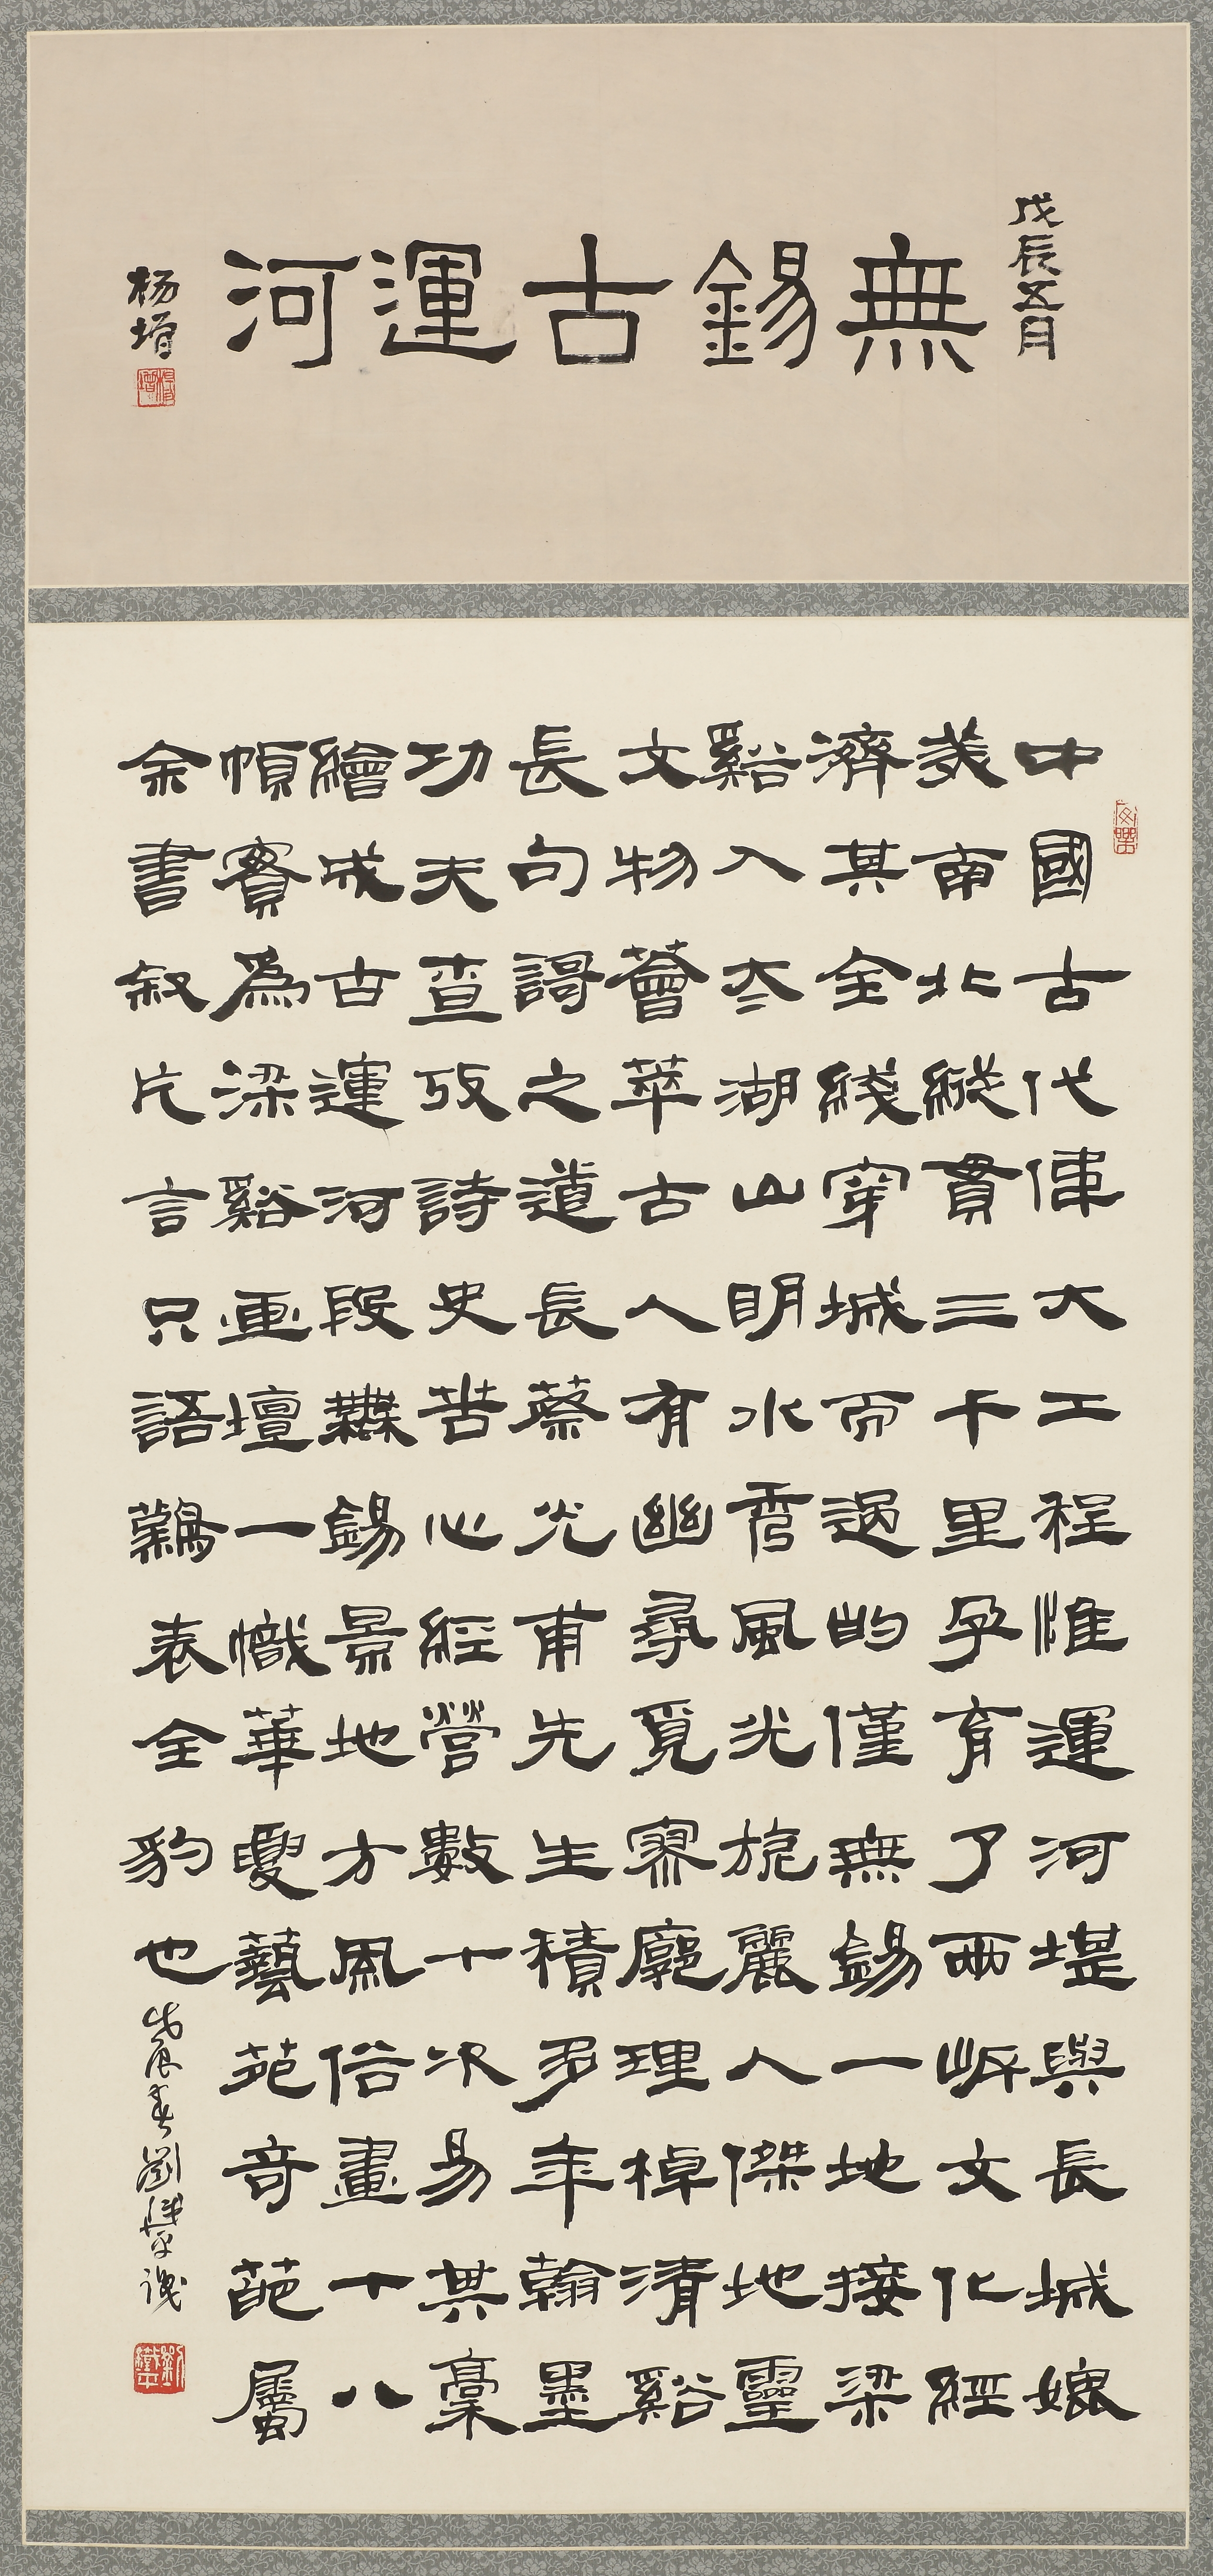 戊辰五月
無錫古運河
杨增
中國古代偉大工程惟運河堪與長城媲
美南北縱貫三千里孕育了兩岸文化經
濟其全綫穿城而過的僅無錫一地接梁
谿入太湖山明水秀風光旎麗人傑地靈
文物薈萃古人有幽尋覓寥廓理棹清谿
長句謌之道長蔡光甫先生積多年翰墨
功夫查攷詩史苦心經營數十次易其稾
繪成古運河段無錫景地方風俗畫十八
幀實爲梁谿画壇一幟華夏藝苑奇葩屬
余書叙片言只語難表全豹也
戊辰春劉鐵平識